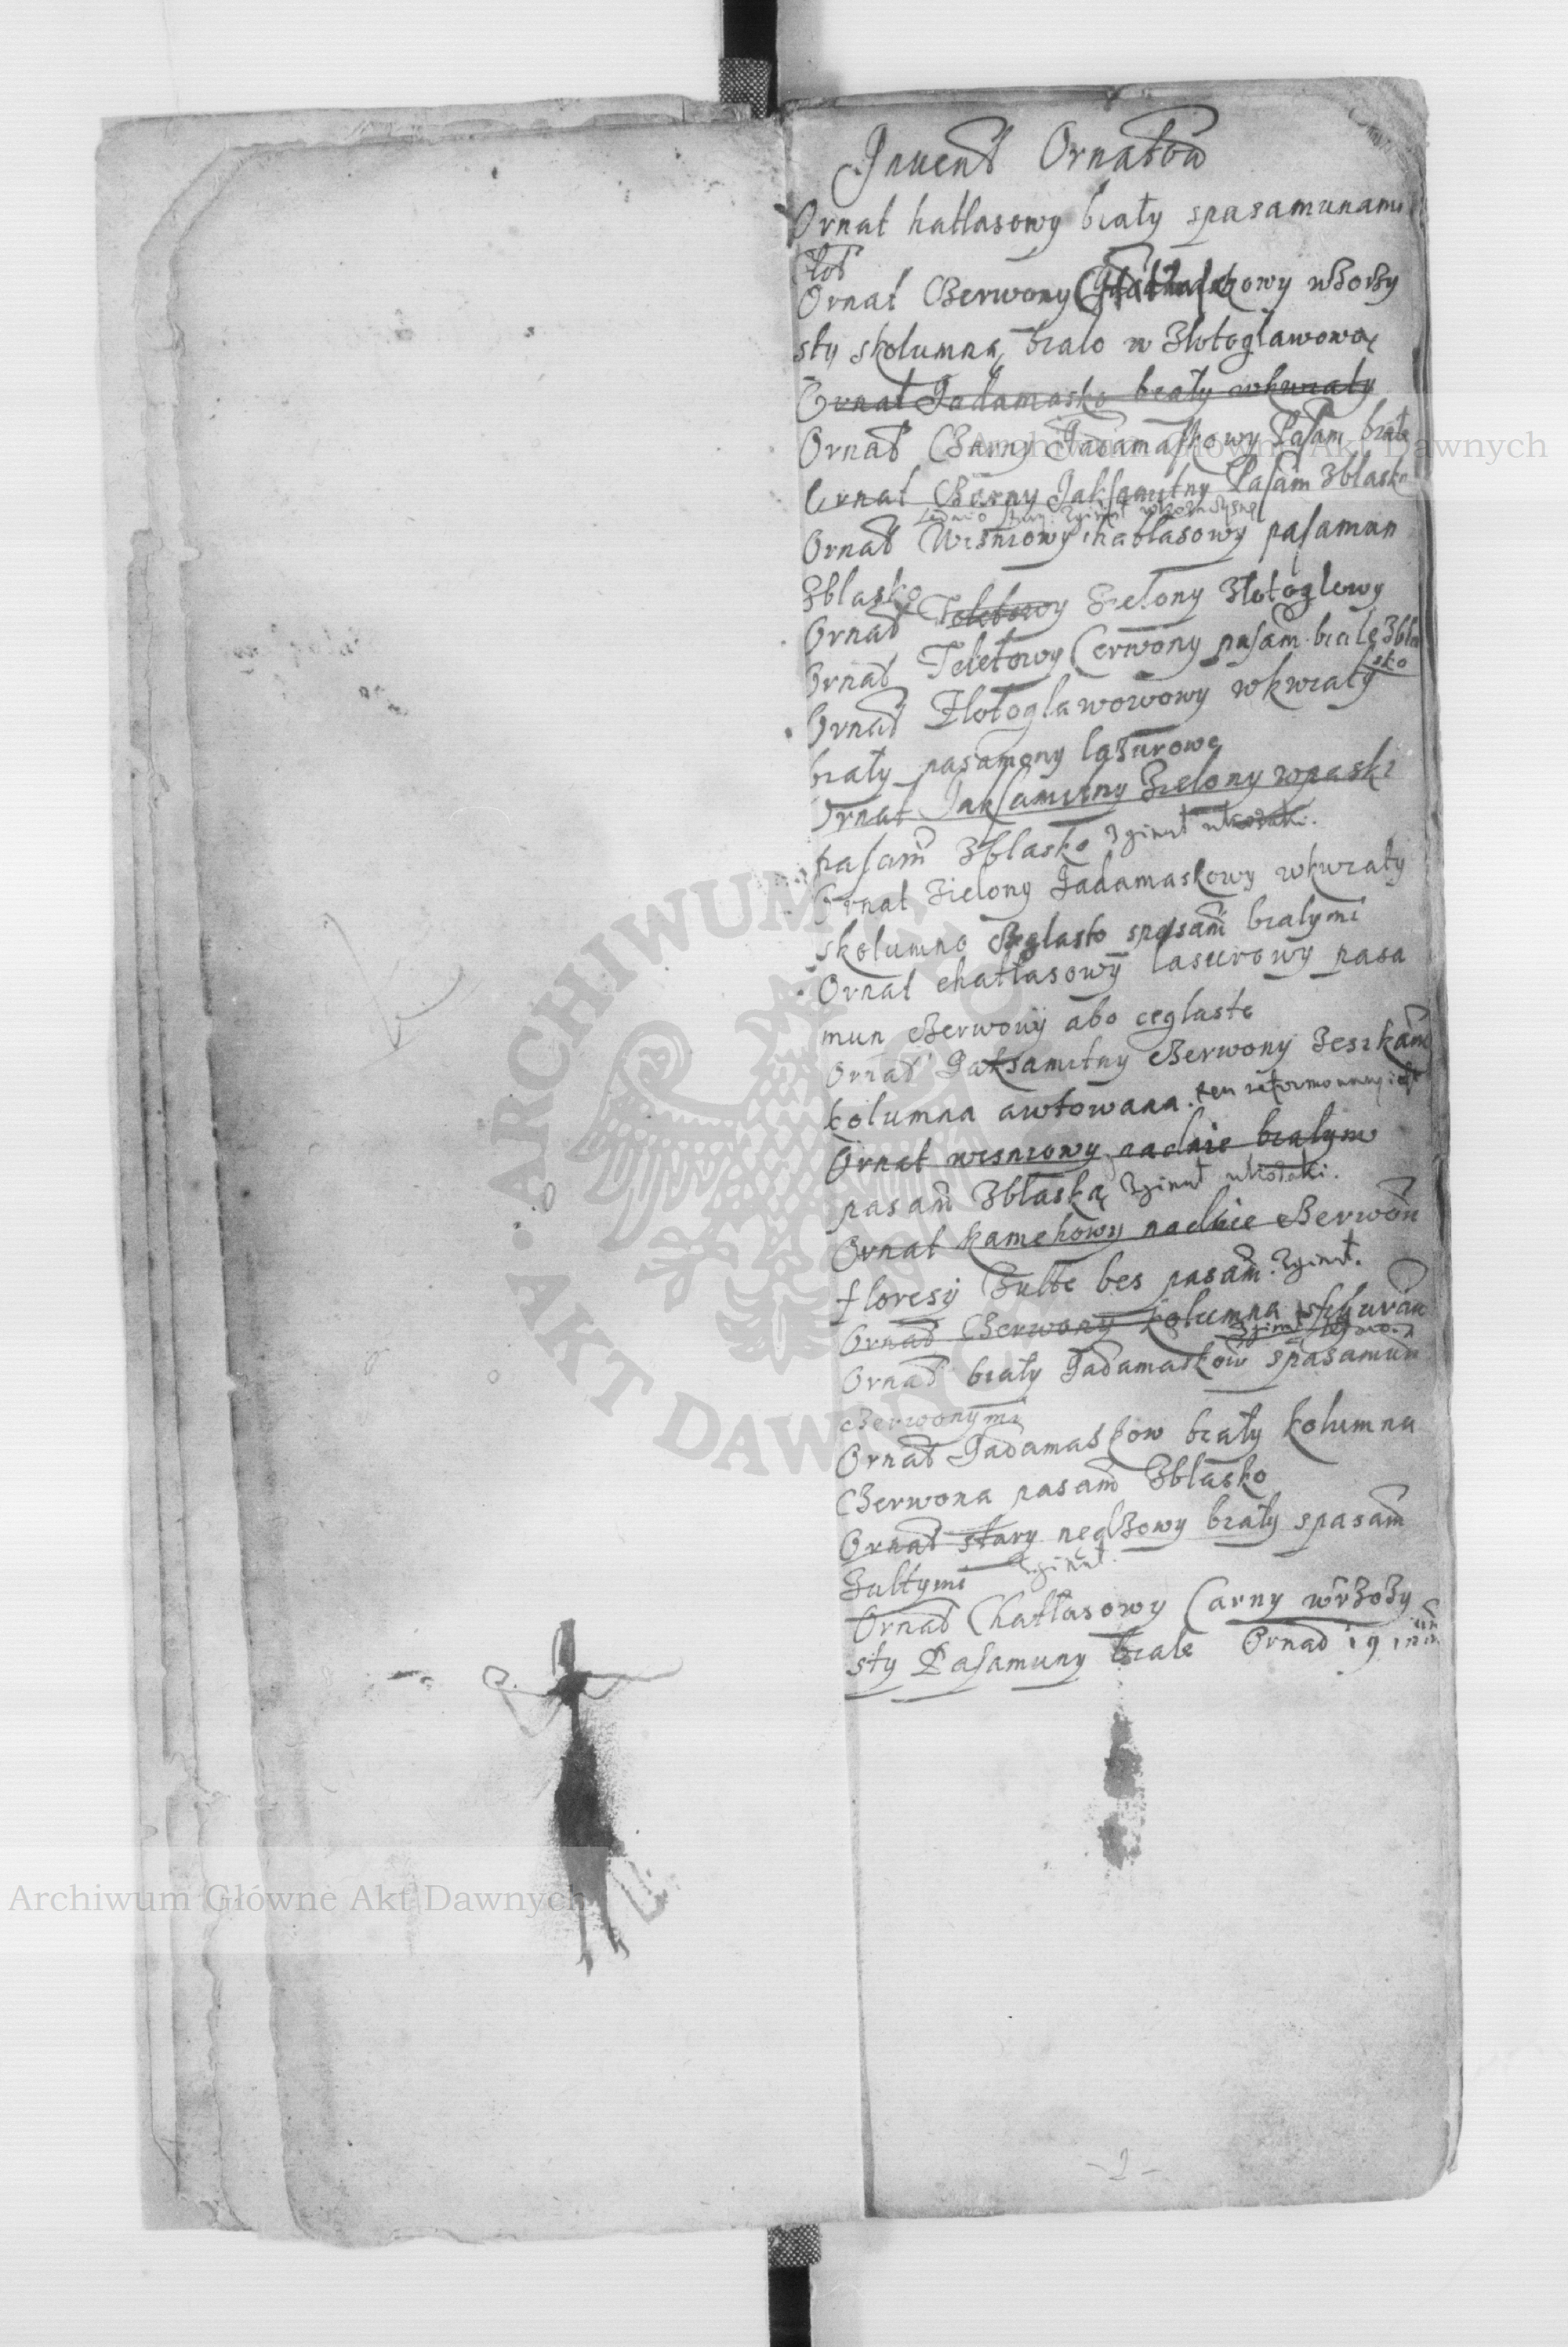 Inuent Ornatow
Ornat hatlasowy biały spasamunami
złot
Ornat Czerwony kowy wzorzy
sty skolumną bialo w złotogławową
Ornat Jadamasko biały wkwiaty
Ornat Czarny Jadamaskowy Pasam białe
Ornat Czarny Jaksamitny Pasam zblasko
Ornat Wisniowy hatlasowy pasamun
zblasko
Ornat Teletowy Zielony złotoglewy
Ornat Teletowy Cerwony pasam białe zbla
sko
Ornat Złotoglawowowy wkwiaty
biały pasamony lazurowe
Ornat Jaksamitny Zielony wpaski
pasam zblasko zginął
Ornat Zielony Jadamaskowy wkwiaty
skolumno ceglasto spasam białymi
Ornat chatlasowy lasurowy pasa
mun czerwony abo ceglaste
Ornat Jaksamitny czerwony zeszkam
kolumna awtowana. ten reformowany iest
Ornat wisniowy nadnie białym
pasam zblaską zginął
Ornat kamchowy nadnie czerwon
floresy żułte bes pasam. zginął.
Ornat Czerwony kolumna
zginął
Ornat biały Jadamaskow spasamun
czerwonymi
Ornat Jadamaskow biały kolumna
Czerwona pasam zblasko
Ornat stary nędzowy biały spasam
żułtymi zginął.
Ornat Chatlasowy Carny wrzozy
sty Pasamuny białe Ornad 19
- 1 -
Archiwum Główne Akt Dawnych
Archiwum Główne Akt Dawnych
ARCHIWUM GŁÓWNE • AKT DAWNYCH •